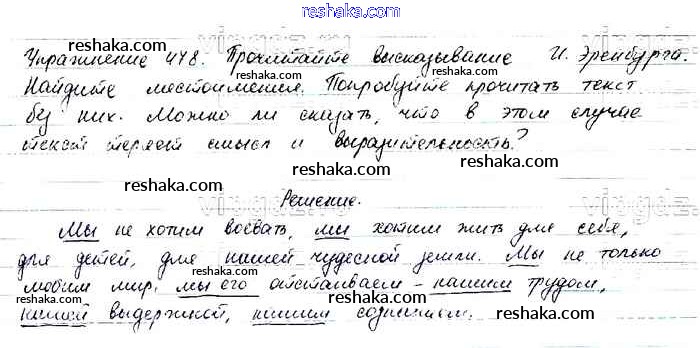 reshaka.com
Упражнение 478. Прочитайте высказывание И. Эренбурга.
reshaka.com reshaka.com
Найдите местоимения. Попробуйте прочитать текст
без них. Можно ли сказать, что в этом случае
текст теряет смысл и выразительность?
reshaka.com reshaka.com
reshaka.com
Решение.
reshaka.com
Мы не хотим воевать, мы хотим жить для себя,
reshaka.com
для детей, для нашей чудесной земли. Мы не только
reshaka.com reshaka.com
любим мир, мы его отстаиваем - нашим трудом,
reshaka.com
нашей выдержкой, нашим
reshaka.com